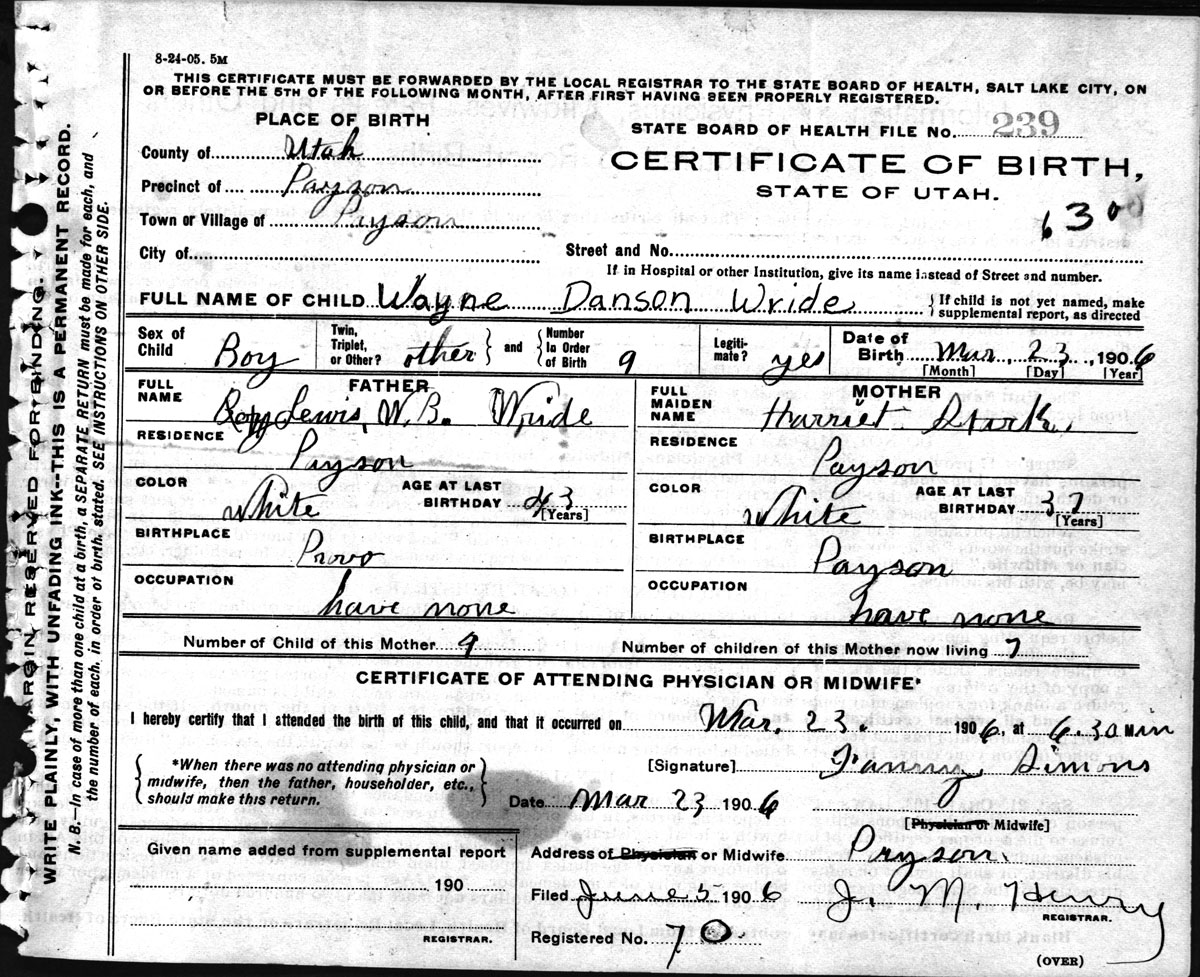 8-24-05. 5M
THIS CERTIFICATE MUST BE FORWARDED BY THE LOCAL REGISTRAR TO THE STATE BOARD OF HEALTH, SALT LAKE CITY, ON
OR BEFORE THE 5TH OF THE FOLLOWING MONTH, AFTER FIRST HAVING BEEN PROPERLY REGISTERED.
PLACE OF BIRTH
STATE BOARD OF HEALTH FILE No. 239
County of Utah
CERTIFICATE OF BIRTH,
Precinct of Payson
STATE OF UTAH.
Town or Village of Payson
6 30
City of
Street and No.
If in Hospital or other Institution, give its name instead of Street and number.
FULL NAME OF CHILD Wayne Danson Wride { If child is not yet named, make supplemental report, as directed
Sex of Child Boy Twin, Triplet, or Other? other } and { Number In Order of Birth 9 Legitimate? yes Date of Birth Mar. 23, 1906
[Month] [Day] [Year]
FATHER
FULL NAME Lewis, W. B. Wride
RESIDENCE Payson
COLOR White AGE AT LAST BIRTHDAY 43
[Years]
BIRTHPLACE Provo
OCCUPATION have none
MOTHER
FULL MAIDEN NAME Harriet Stark
RESIDENCE Payson
COLOR White AGE AT LAST BIRTHDAY 37
[Years]
BIRTHPLACE Payson
OCCUPATION have none
Number of Child of this Mother 9 Number of children of this Mother now living 7
CERTIFICATE OF ATTENDING PHYSICIAN OR MIDWIFE*
I hereby certify that I attended the birth of this child, and that it occurred on Mar. 23. 1906, at 6.30
{ *When there was no attending physician or midwife, then the father, householder, etc., should make this return. }
[Signature] Fanny Simons
Date Mar 23 1906
[Physician or Midwife]
Address of Physician or Midwife Payson.
Given name added from supplemental report
190
REGISTRAR.
Filed June 5 1906 J. M. Henry
REGISTRAR.
Registered No. 70
(OVER)
MARGIN RESERVED FOR BINDING.
WRITE PLAINLY, WITH UNFADING INK—THIS IS A PERMANENT RECORD.
N. B.—In case of more than one child at a birth, a SEPARATE RETURN must be made for each, and
the number of each, in order of birth, stated. SEE INSTRUCTIONS ON OTHER SIDE.